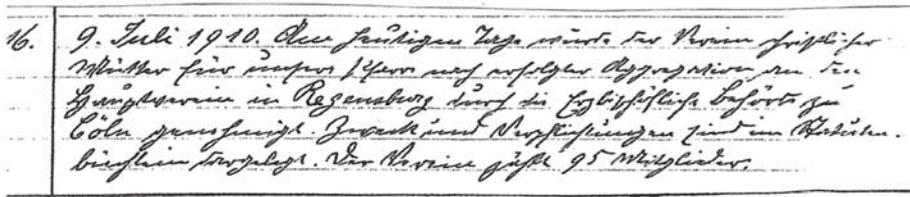 16. 9. Juli 1910. Am heutigen Tage wurde der Verein christlicher
Mütter für unsere Pfarre nach erfolgter Aggregation an den
Hauptverein in Regensburg durch die Erzbischöfliche Behörde zu
Cöln genehmigt. Zweck und Verpflichtungen sind im Statuten-
büchlein dargelegt. Der Verein zählt 95 Mitglieder.